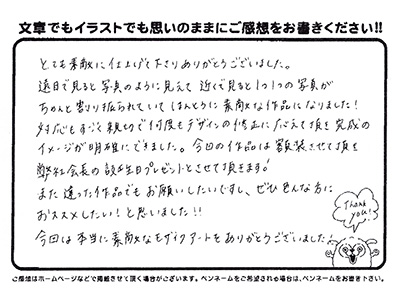 文章でもイラストでも思いのままにご感想をお書きください!!
とても素敵に仕上げて下さりありがとうございました。
遠目で見ると写真のように見えて近くで見ると1つ1つの写真が
ちゃんと割り振られていてほんとうに素敵な作品になりました!
対応もすごく親切で何度もデザインの修正に応えて頂き完成の
イメージが明確にできました。今回の作品は額装させて頂き
弊社会長の誕生日プレゼントとさせて頂きます!
また違った作品でもお願いしたいですし、ぜひ色んな方に
おススメしたい!と思いました!!
今回は本当に素敵なモザイクアートをありがとうございました!
Thank you!
ご感想はホームページなどで掲載させて頂く場合がございます。ペンネームをご希望される場合は、ペンネームをお書き下さい。